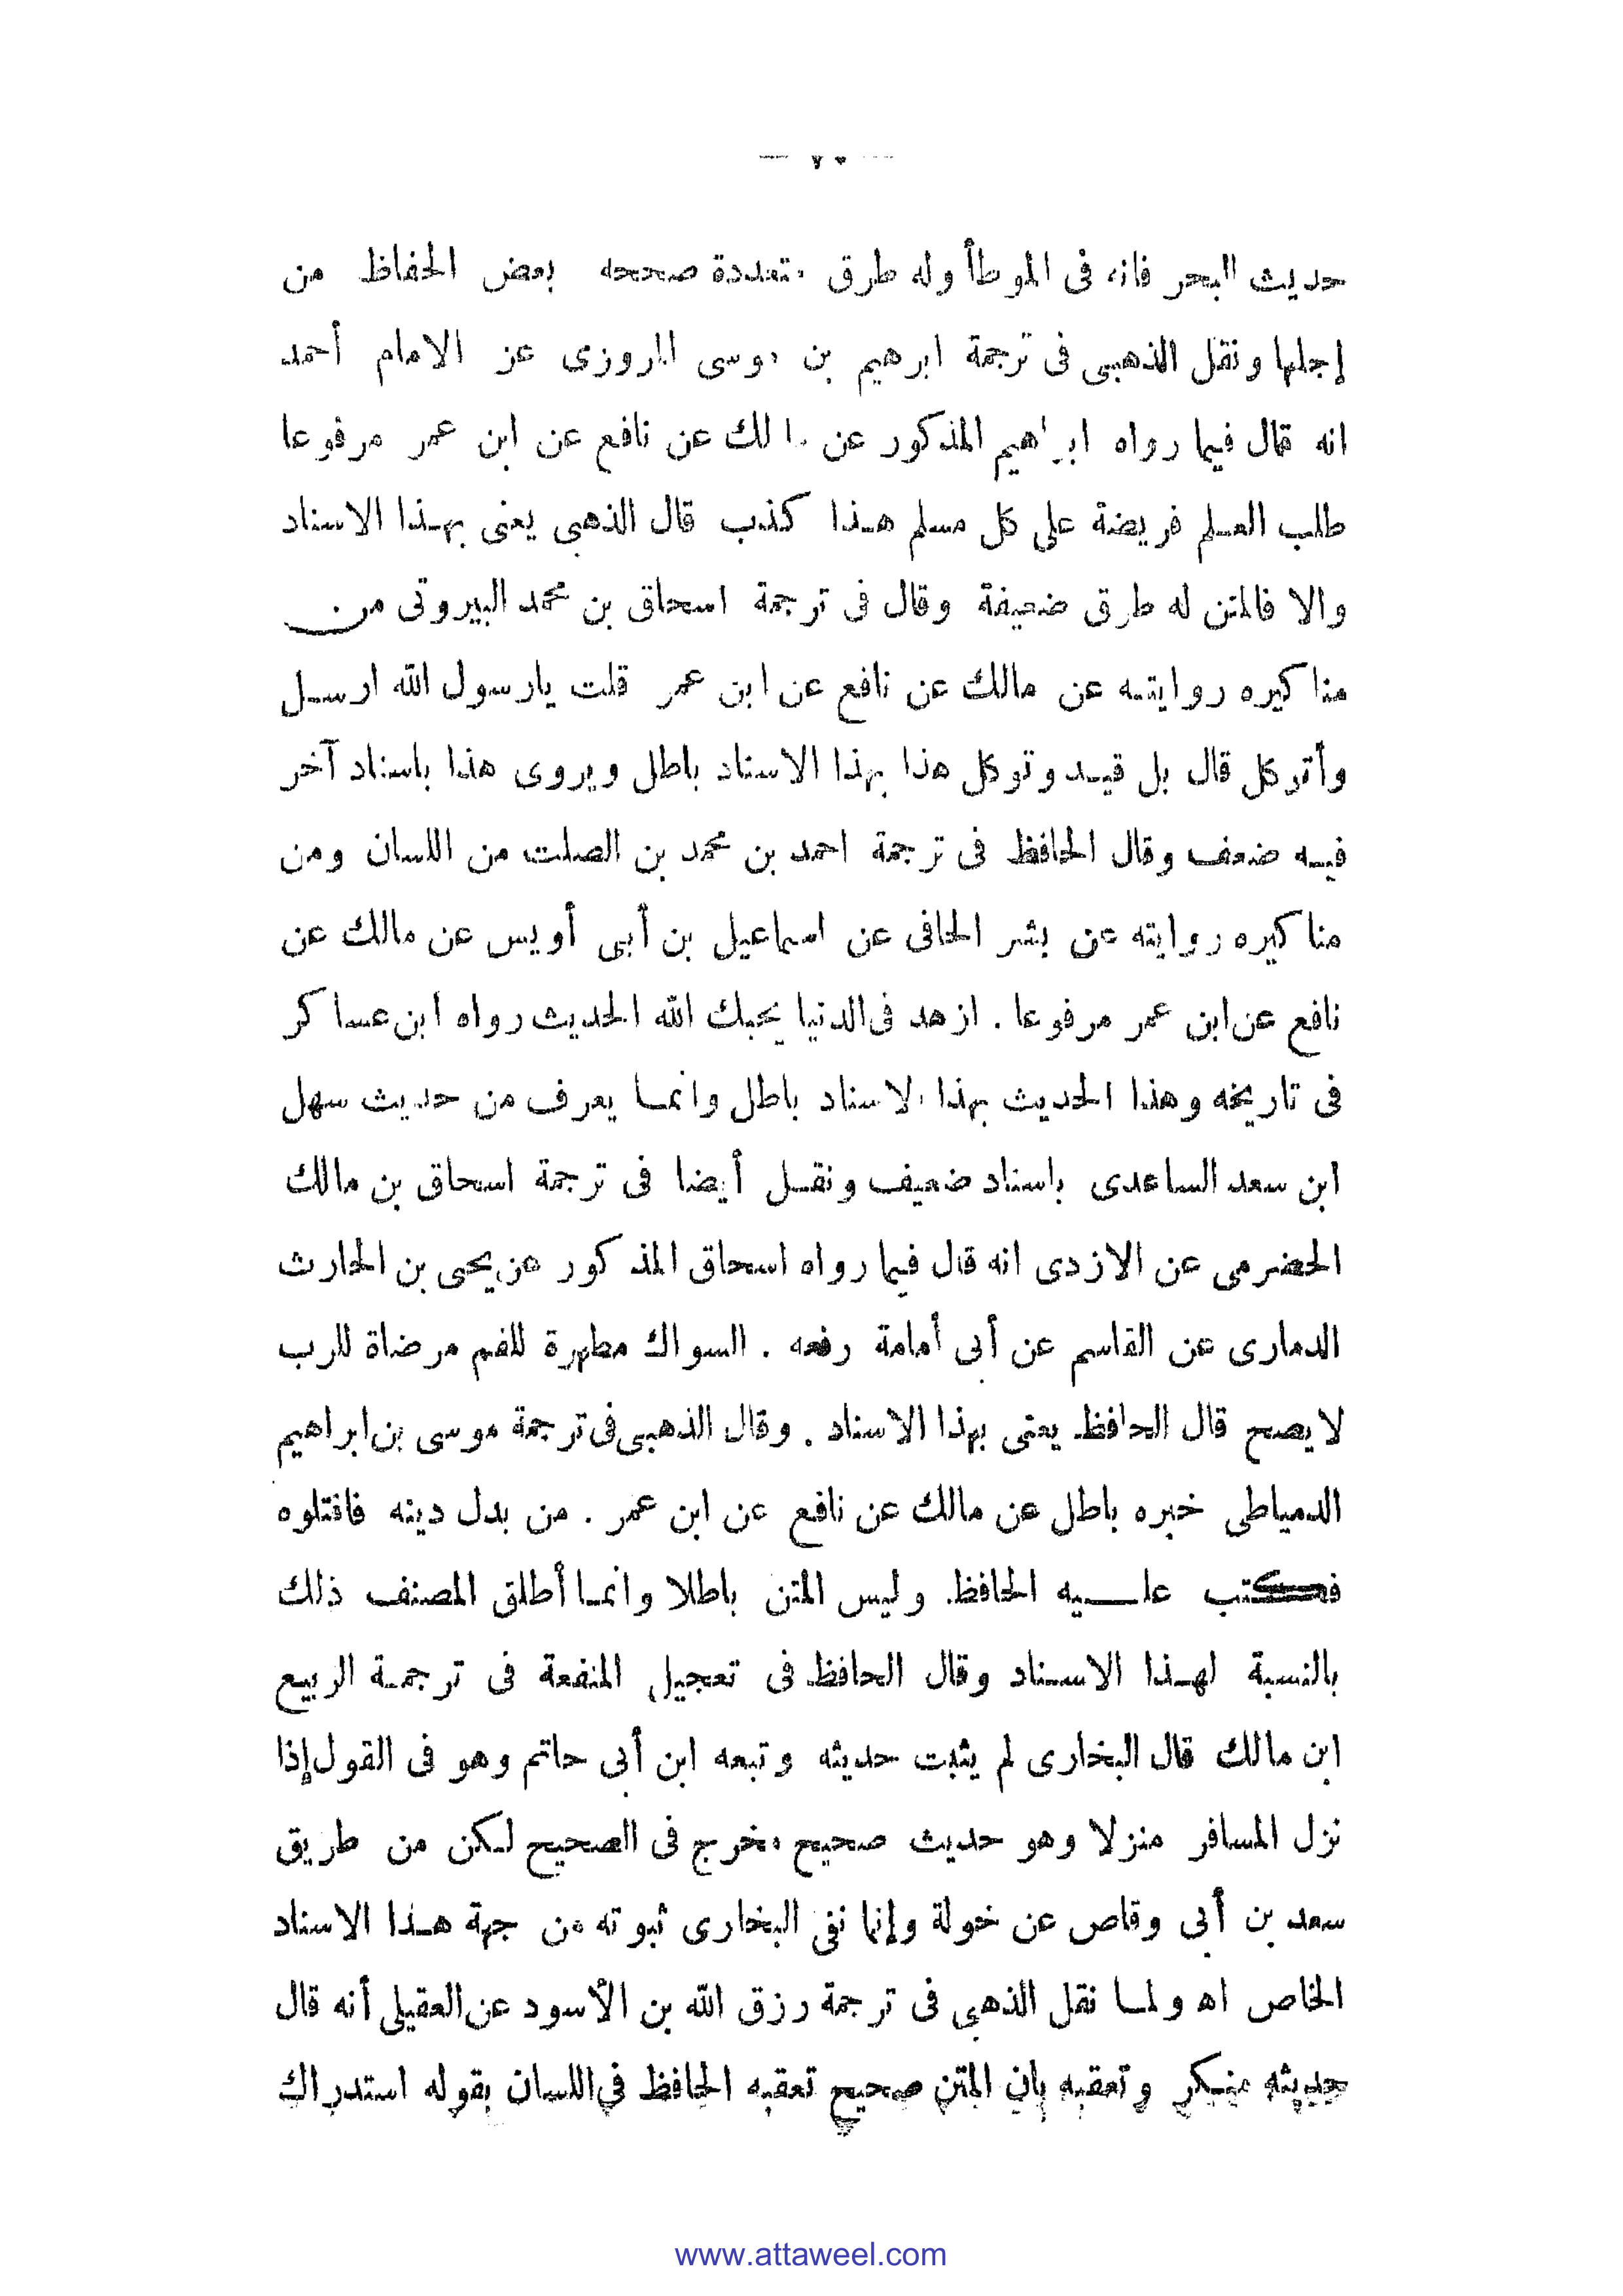 — ٧٠ —
حديث البحر فانه فى الموطأ وله طرق متعددة صححه بعض الحفاظ من
إجلها ونقل الذهبى فى ترجمة ابرهيم بن موسى المروزى عن الامام أحمد
انه قال فيما رواه ابراهيم المذكور عن مالك عن نافع عن ابن عمر مرفوعا
طلب العلم فريضة على كل مسلم هذا كذب قال الذهبى يعنى بهذا الاسناد
والا فالمتن له طرق ضعيفة وقال فى ترجمة اسحاق بن محمد البيروتى من
مناكيره روايته عن مالك عن نافع عن ابن عمر قلت يارسول الله ارسل
وأتركل قال بل قيد وتوكل هذا بهذا الاسناد باطل ويروى هذا باسناد آخر
فيه ضعف وقال الحافظ فى ترجمة احمد بن محمد بن الصلت من اللسان ومن
مناكيره روايته عن بشر الحافى عن اسماعيل بن أبى أويس عن مالك عن
نافع عن ابن عمر مرفوعا . ازهد فى الدنيا يحبك الله الحديث رواه ابن عساكر
فى تاريخه وهذا الحديث بهذا الاسناد باطل وانما يعرف من حديث سهل
ابن سعد الساعدى باسناد ضعيف ونقل أيضا فى ترجمة اسحاق بن مالك
الحضرمى عن الازدى انه قال فيما رواه اسحاق المذكور عن يحيى بن الحارث
الدمارى عن القاسم عن أبى أمامة رفعه . السواك مطهرة للفم مرضاة للرب
لا يصح قال الحافظ يعنى بهذا الاسناد . وقال الذهبى فى ترجمة موسى بن ابراهيم
الدمياطى خبره باطل عن مالك عن نافع عن ابن عمر . من بدل دينه فاقتلوه
فكتب عليه الحافظ وليس المتن باطلا وانما أطلق المصنف ذلك
بالنسبة لهذا الاسناد وقال الحافظ فى تعجيل المنفعة فى ترجمة الربيع
ابن مالك قال البخارى لم يثبت حديثه وتبعه ابن أبى حاتم وهو فى القول إذا
نزل المسافر منزلا وهو حديث صحيح مخرج فى الصحيح لكن من طريق
سعد بن أبى وقاص عن خولة وإنما نفى البخارى ثبوته من جهة هذا الاسناد
الخاص اه ولما نقل الذهبى فى ترجمة رزق الله بن الأسود عن العقيلى أنه قال
حديثه منكر وتعقبه بان المتن صحيح تعقبه الحافظ في اللسان بقوله استدراك
www.attaweel.com